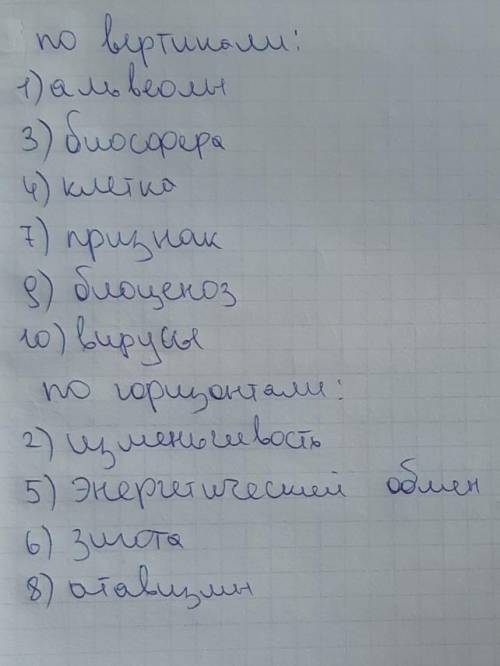 по вертикали:
1) альвеолы
3) биосфера
4) клетка
7) признак
9) биоценоз
10) вирусы
по горизонтали:
2) изменьчивость
5) энергетический обмен
6) зигота
8) атавизмы